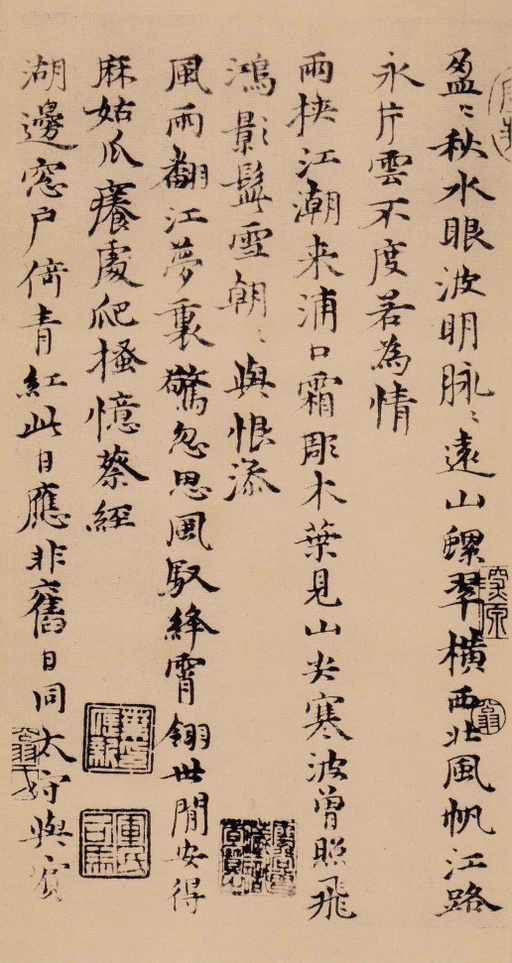 盈〻秋水眼波明脉〻遠山螺翠橫西北風帆江路
永片雲不度若為情
雨挾江潮来浦口霜彫木葉見山尖寒波曾照飛
鴻影鬢雪朝〻與恨添
風雨翻江夢裏驚忽思風馭絳霄翎世間安得
麻姑爪癢處爬搔憶蔡經
湖邊窓户倚青紅此日應非舊日同太守與賓